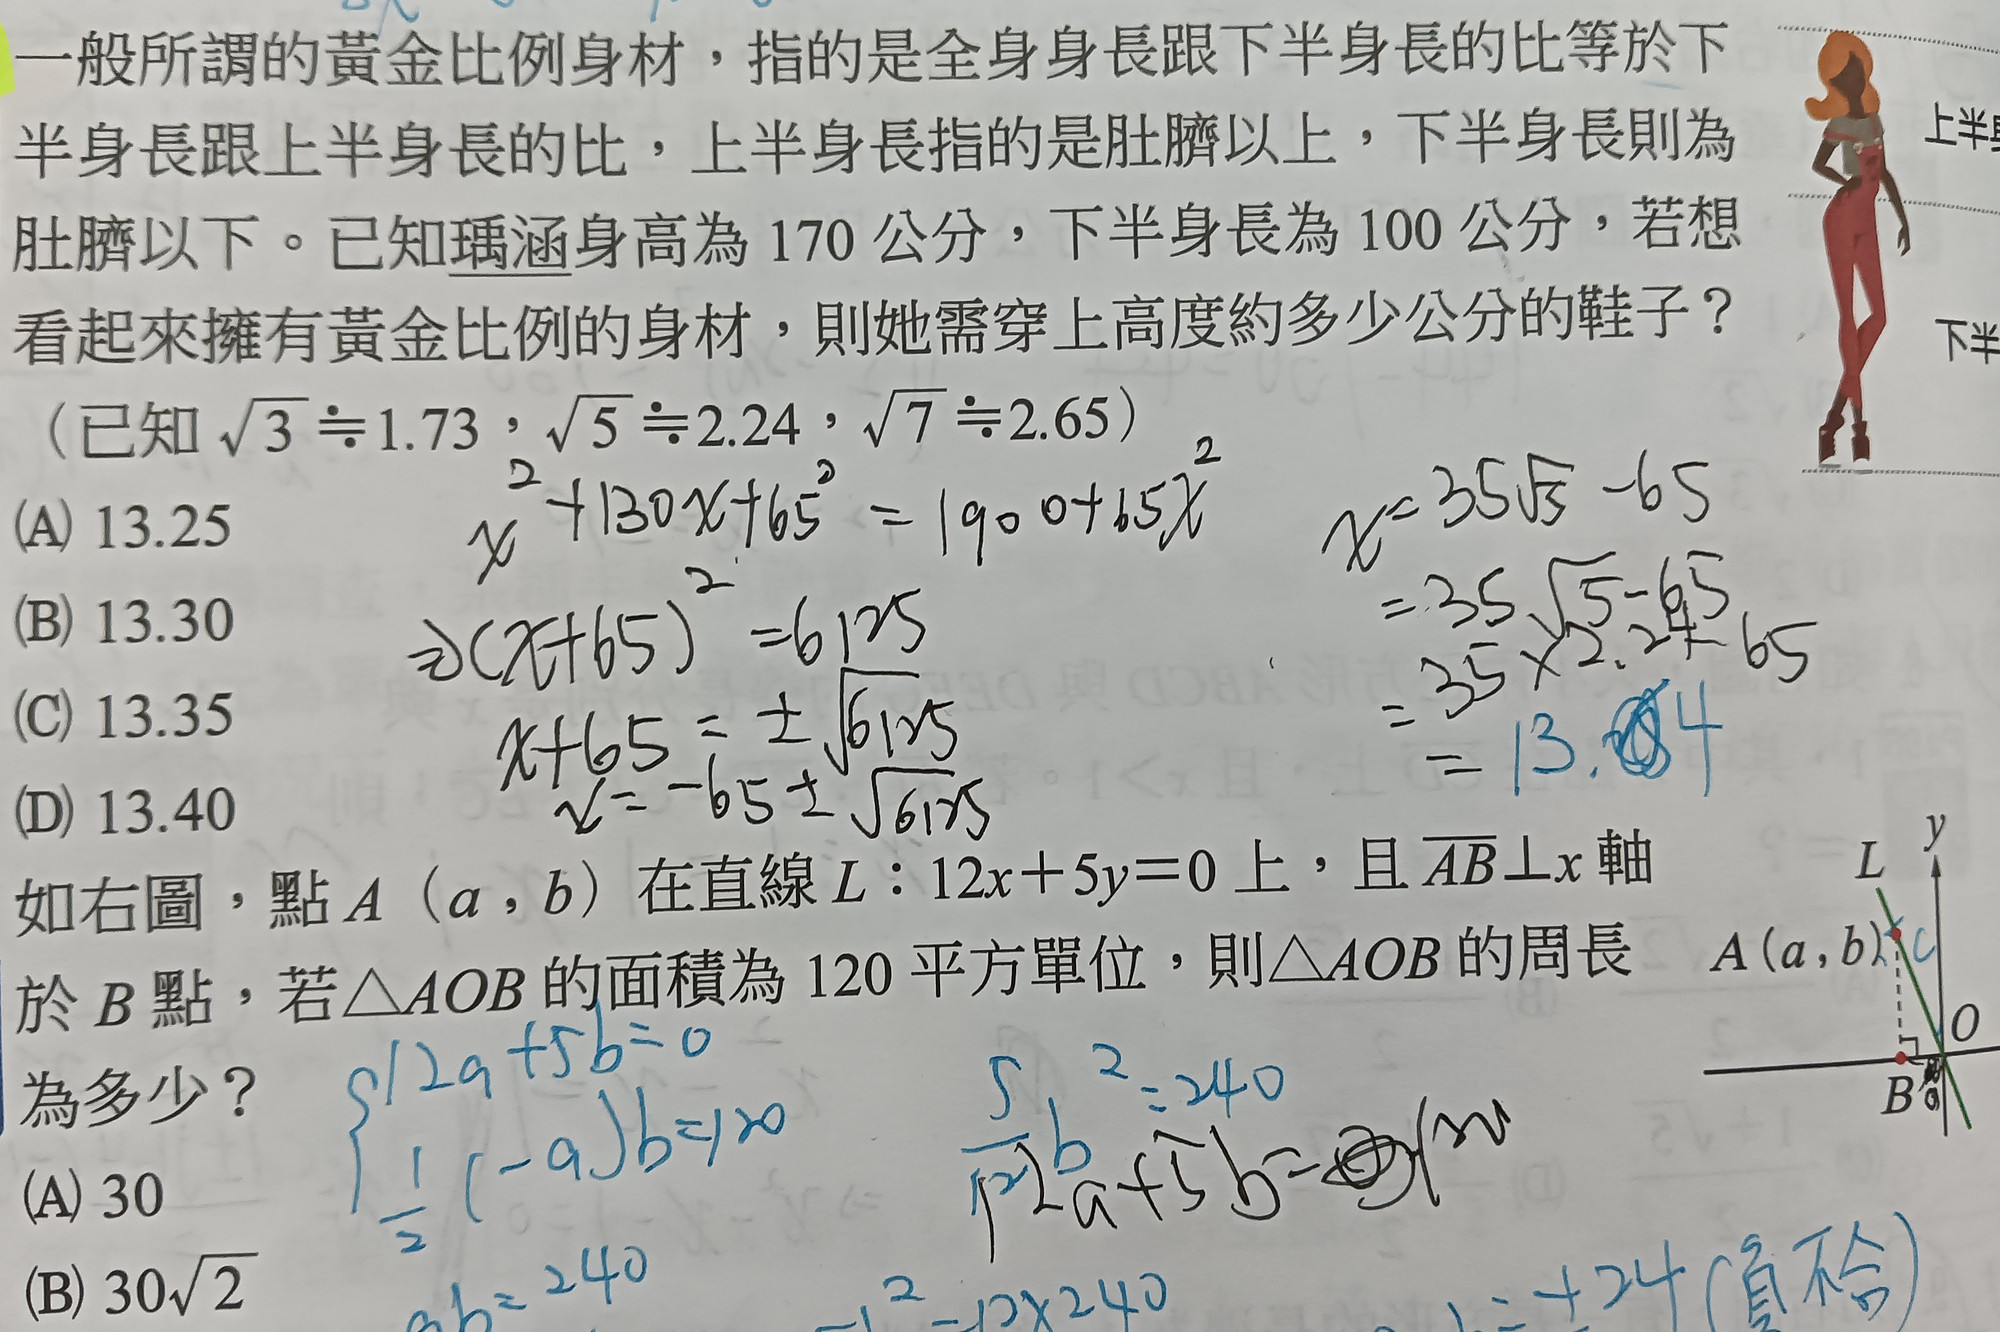 一般所謂的黃金比例身材，指的是全身身長跟下半身長的比等於下
半身長跟上半身長的比，上半身長指的是肚臍以上，下半身長則為
肚臍以下。已知瑀涵身高為 170 公分，下半身長為 100 公分，若想
看起來擁有黃金比例的身材，則她需穿上高度約多少公分的鞋子？
（已知 √3≒1.73，√5≒2.24，√7≒2.65）
上半
下半
(A) 13.25
(B) 13.30
(C) 13.35
(D) 13.40
x²+130x+65²=1900+65x²
⇒(x+65)²=6125
x+65=±√6125
x=-65±√6125
x=35√5-65
=35√5-65
=35×2.24-65
=13.4
如右圖，點 A（a，b）在直線 L：12x＋5y＝0 上，且 AB⊥x 軸
於 B 點，若△AOB 的面積為 120 平方單位，則△AOB 的周長
為多少？
L
y
A(a,b)
C
O
B
(A) 30
(B) 30√2
12a+5b=0
1/2(-a)b=120
5/12 b²=240
12a+5b=
ab=240
=12×240
±24(負不合)